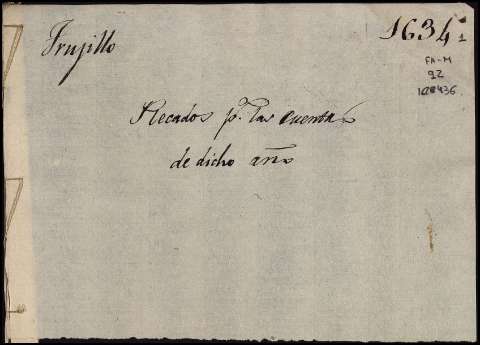 Trujillo
1634
1
FA-M
92
Recados p.ª las cuentas
de dicho año